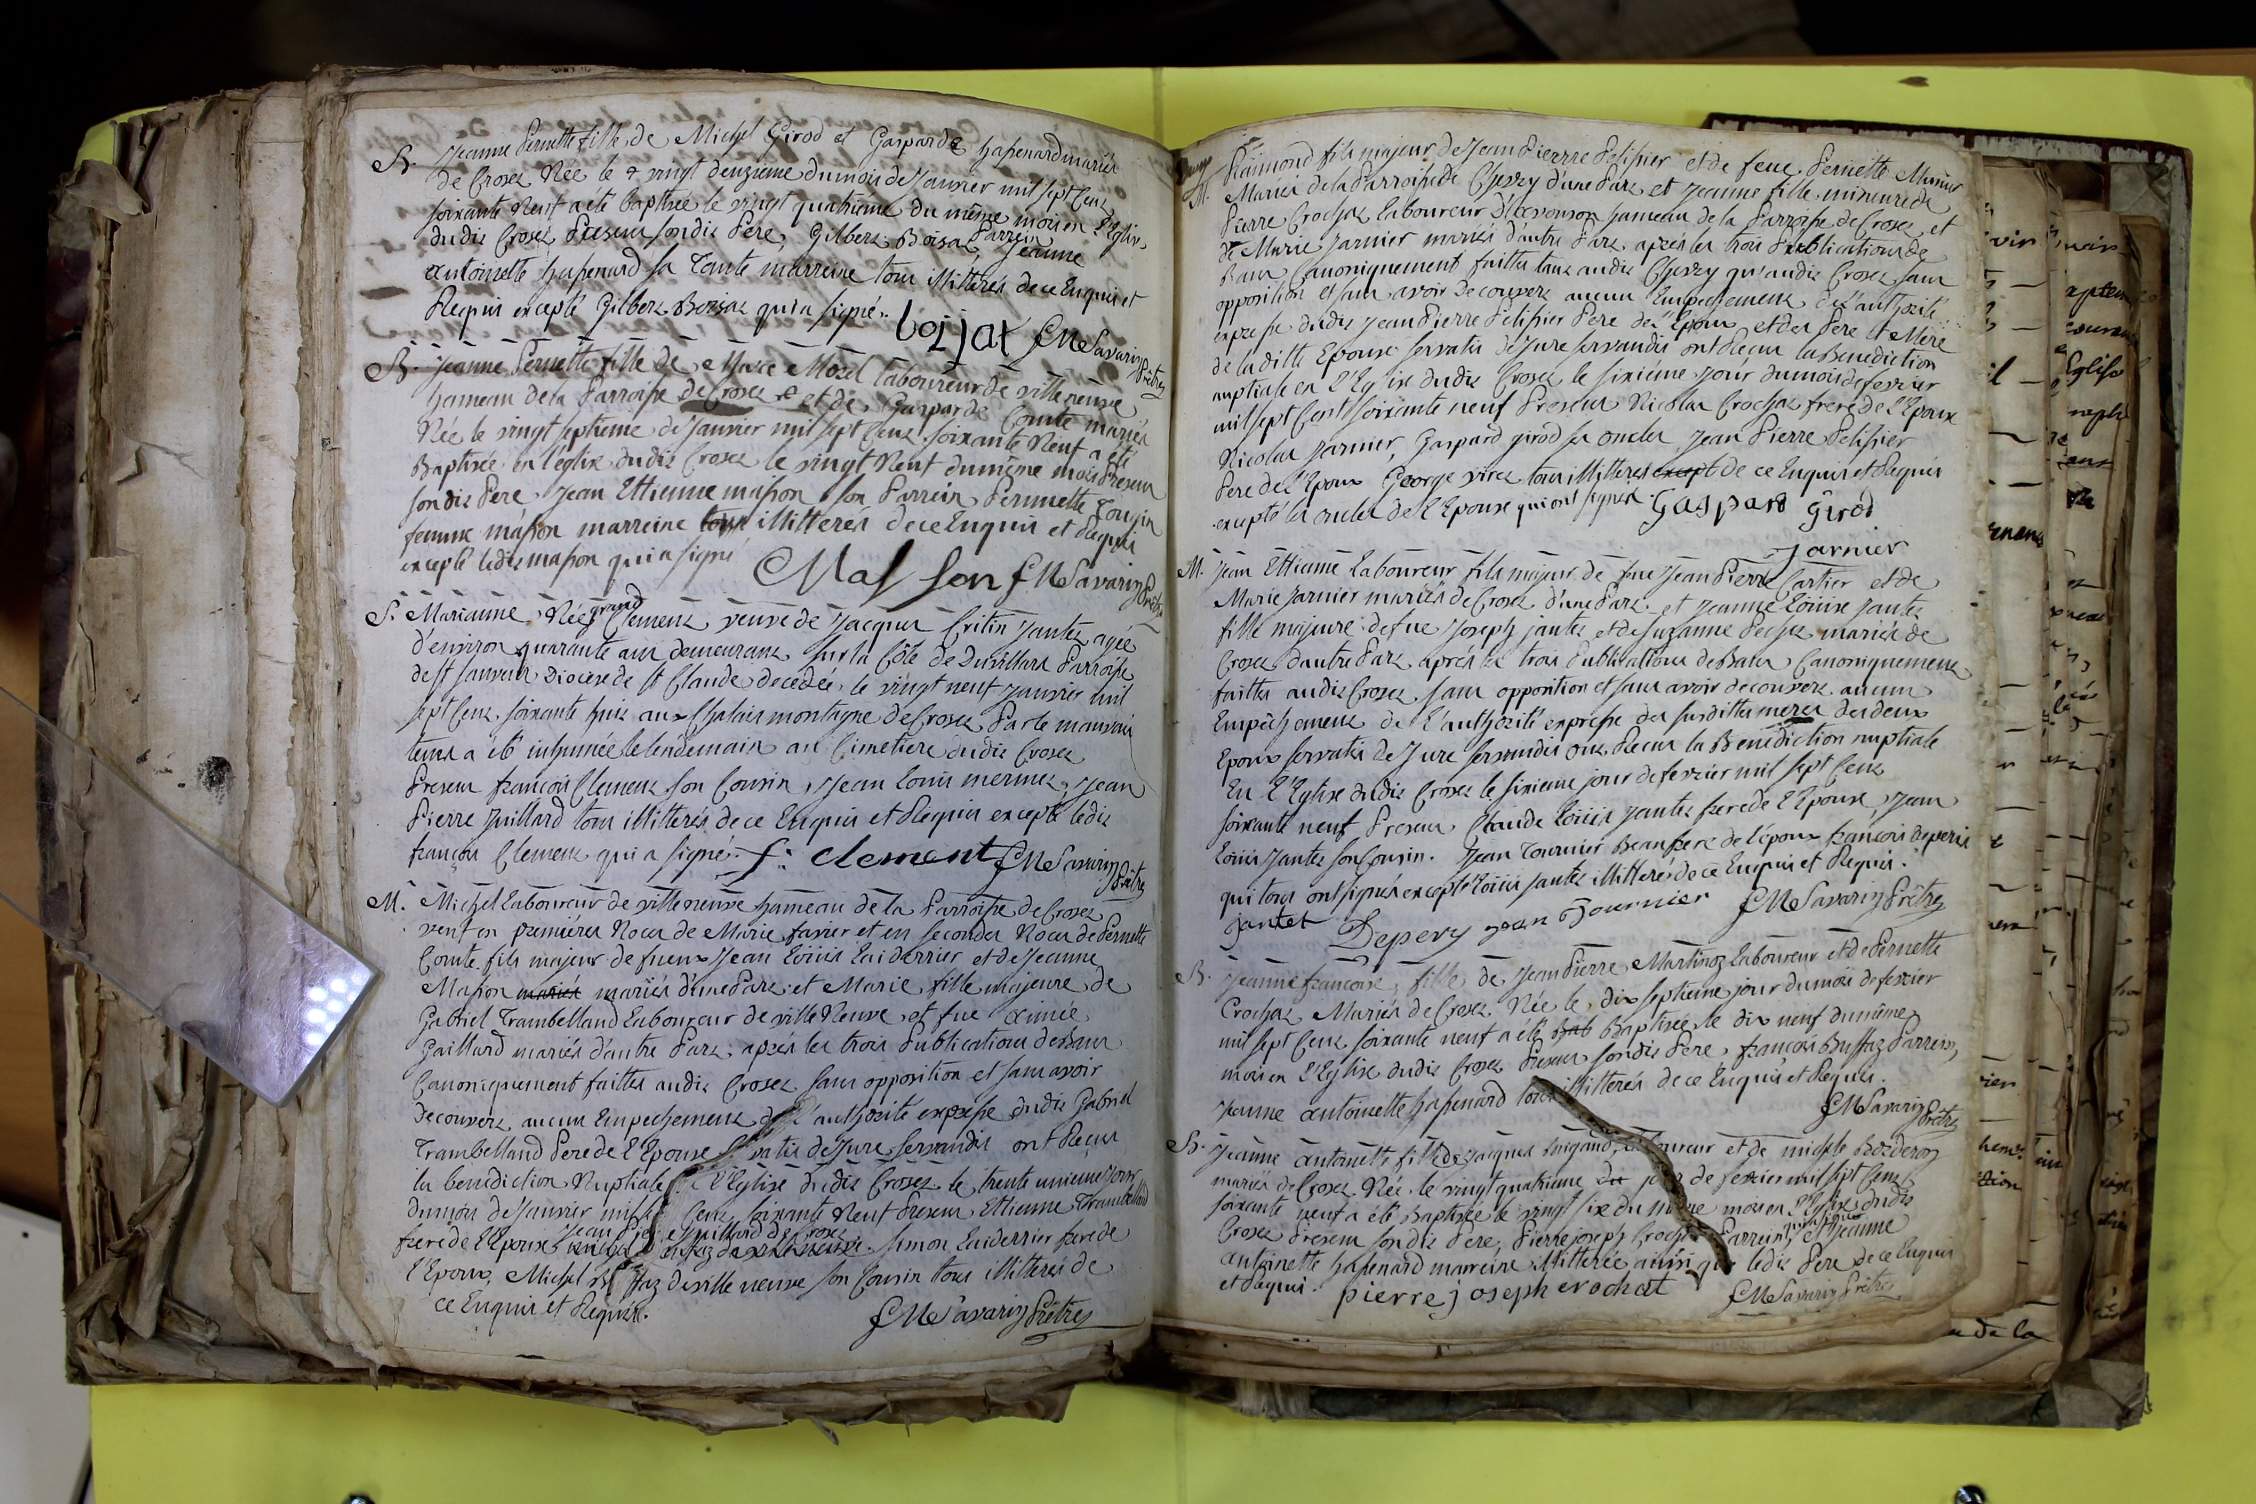 B. Jeanne Pernette fille de Michel Girod et Gasparde hassenard mariés
de Crosez Née le vingt deuzieme du mois de Janvier mil sept Cens
soixante Neuf a été baptisée le vingt quatrieme du même mois en l'Eglise
dudis Crosez Presens sondis Pere, Gilbers Boisat Parrein, Jeanne
antoinette hassenard sa tante marreine tous illitterés de ce Enquis et
Requis excepté Gilbers Boisat qui a signé.
boijat FMSavarin Prêtre
B. Jeanne Pernette fille de Marie Morel laboureur de villeneuve
hameau de la Parroisse de Crosez et de Gasparde Comte mariés
Née le vingt septieme de Janvier mil sept Cens soixante Neuf a été
Baptisée en l'eglise dudis Crosez le vingt Neuf du même mois Presens
sondis Pere, Jean Ettienne masson son Parrein Pernette
femme masson marreine tous illitterés de ce Enquis et Requis
excepté ledis masson qui a signé
Masson FMSavarin Prêtre
S. Marianne Née grand Clemens veuve de Jacques Critin Jantez agée
d'environ quarante ans demeurans sur la Côte de Duvillars Parroisse
de st sauveur Diocese de St Claude decedée le vingt neuf Janvier mil
sept Cens soixante huis aux Chalais montagne de Crosez Par le mauvais
tems a été inhumée le lendemain au Cimetiere dudis Crosez
Presens françois Clemens son Cousin, Jean Louis mermez, Jean
Pierre Juillard tous illitterés de ce Enquis et Requis excepté ledis
françois Clemens qui a signé. f: clement FMSavarin Prêtre
M. Michel laboureur de villeneuve hameau de la Parroisse de Crosez
veuf en premières Noces de Marie favier et en secondes Noces de Pernette
Comte fils majeur de fueux Jean Loüis Laiderrier et de Jeanne
Masson mariés mariés d'une Pars et Marie fille majeure de
Gabriel Trambelland Laboureur de ville Neuve et fue aimée
Gaillard mariés d'autre Pars, après les trois Publications de Bans
Canoniquement faittes audis Crosez sans opposition et sans avoir
decouvers aucun Empechemens de l'authorité expresse dudis Gabriel
Trambelland Pere de l'Epouse vatis de Jure servandis ont Reçus
la benediction Nuptiale l'Eglise dudis Crosez le trente unieme jour
du mois de Janvier mil Cens soixante Neuf Presens Ettienne Trambelland
frere de l'Epouse, Juillard de Crosez Simon Laiderrier frere de
l'Epoux, Michel Buffaz de ville neuve son Cousin tous illitterés de
ce Enquis et Requis.
FMSavarin Prêtre
M. Raimond fils majeur de Jean Pierrre Pelissier et de feue Pernette
Mariés de la Parroisse de Chevry d'une Pars et Jeanne fille mineure de
Pierre Crochaz laboureur hameau de la Parroisse de Crosez et
de Marie Jarnier mariés d'autre Pars, après les trois Publications de
Bans Canoniquement faittes tans audis Chevry qu'audis Crosez sans
opposition et sans avoir decouvers aucun Empechemens de l'authorité
expresse dudis Jean Pierre Pelissier Pere de l'Epoux et des Pere et Mere
de laditte Epouse servatis de Jure servandis ont Recus la Benediction
nuptiale en l'Eglise dudis Crosez le sixieme jour du mois de fevrier
mil sept Cent soixante neuf Presens Nicolas Crochaz frere de l'Epouse
Nicolas Jarnier, Gaspard girod ses oncles, Jean Pierre Pelissier
Pere de l'Epoux George virez tous illitterés except de ce Enquis et Requis
excepté les oncles de l'Epouse qui ont signés. Gaspard Girod
Jarnier
M. Jean Ettienne Laboureur fils majeur de fue Jean Pierre Cartier et de
Marie Jarnier mariés de Crosez d'une Pars et Jeanne Loüise Jantez
fille majeure de fue Joseph jantez et de Suzanne Pechez mariés de
Crosez d'autre Pars après les trois Publications de Bans Canoniquemens
faittes audis Crosez sans opposition et sans avoir decouvers aucun
Empêchemens de l'authorité expresse des susdittes meres desdeux
Epoux servatis de Jure servandis ons Recus la Benediction nuptiale
En l'Eglise dudis Crosez le sixieme jour de fevrier mil sept Cens
soixante neuf Presens Claude Loüis Jantez frere de l'Epouse, Jean
Loüis Jantez son Cousin. Jean Tournier Beaufrere de l'époux françois deperis
qui tous ont signés excepté Loüis jantez illitteré de ce Enquis et Requis.
jantet Depery jean Tournier FMSavarin Prêtre
B. Jeanne françoise fille de Jean Pierre Martinoz laboureur et de Pernette
Crochaz Mariés de Crosez Née le dix septieme jour du mois de fevrier
mil sept Cens soixante neuf a été Bab Baptisée le dix neuf du même
mois en l'Eglise dudis Crosez Presens sondis Pere, françois Buffaz Parrein,
Jeanne antoinette hassenard tous illitterés de ce Enquis et Requis.
FMSavarin Prêtre
B. Jeanne antoinette fille de Jaques laboureur et de michele
mariés de Crosez Née le vingt quatrieme du jour de fevrier mil sept Cens
soixante neuf a été Baptisée le vingt six du même mois en l'Eglise dudis
Crosez Presens sondis Pere, Pierre joseph Crochat Parrein qui a signé et Jeanne
antoinette hassenard marreine illitterée ainsi que ledis Pere de ce Enquis
et Requis. pierre joseph crochat FMSavarin Prêtre